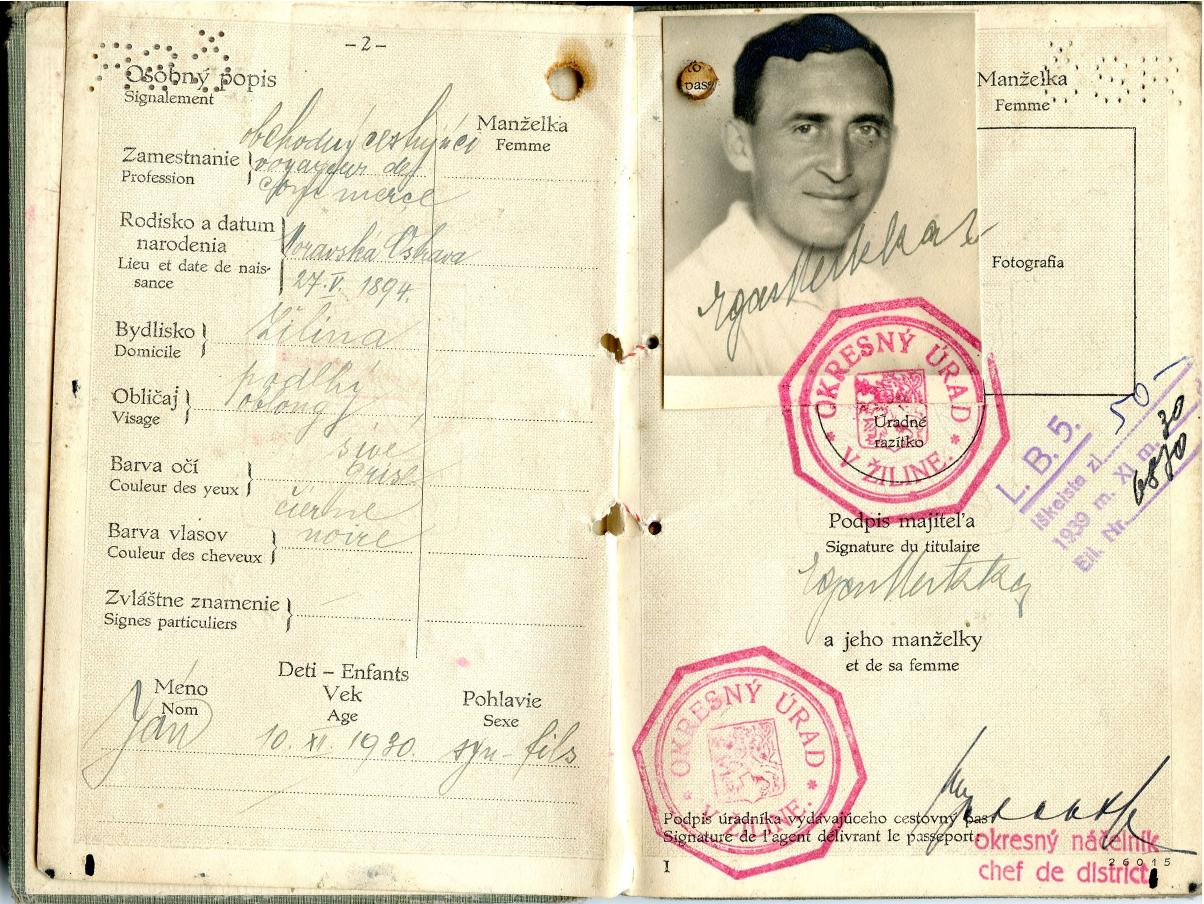 -2-
Osobný popis
Signalement
Manželka
Femme
Zamestnanie
Profession
obchodný cestujúci
voyageur de
commerce
Rodisko a datum
narodenia
Lieu et date de nais-
sance
Moravská Ostrava
27. V. 1894.
Bydlisko
Domicile
Žilina
Obličaj
Visage
podlhý
oblong
Barva očí
Couleur des yeux
sivé
grise
Barva vlasov
Couleur des cheveux
čierne
noire
Zvláštne znamenie
Signes particuliers
Deti – Enfants
Méno
Nom
Vek
Age
Pohlavie
Sexe
Ján 10. XI. 1930. syn-fils
Manželka
Femme
Fotografia
OKRESNÝ ÚRAD
V ŽILINE.
Úradné
razítko
L. B. 5.
Iškeista zl. 50-
1939 m. XI m. 30
Eil. Nr. 6870
Podpis majiteľa
Signature du titulaire
a jeho manželky
et de sa femme
OKRESNÝ ÚRAD
V ŽILINE.
Podpis úradníka vydávajúceho cestovný pas
Signature de l'agent délivrant le passeport:
okresný náčelník
chef de district.
26015
I